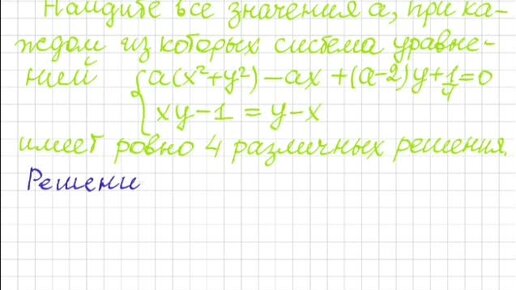 Найдите все значения а, при ка-
ждом из которых система уравне-
ний { a(x²+y²)-ax+(a-2)y+1/4=0
xy-1=y-x
имеет ровно 4 различных решения.
Решени